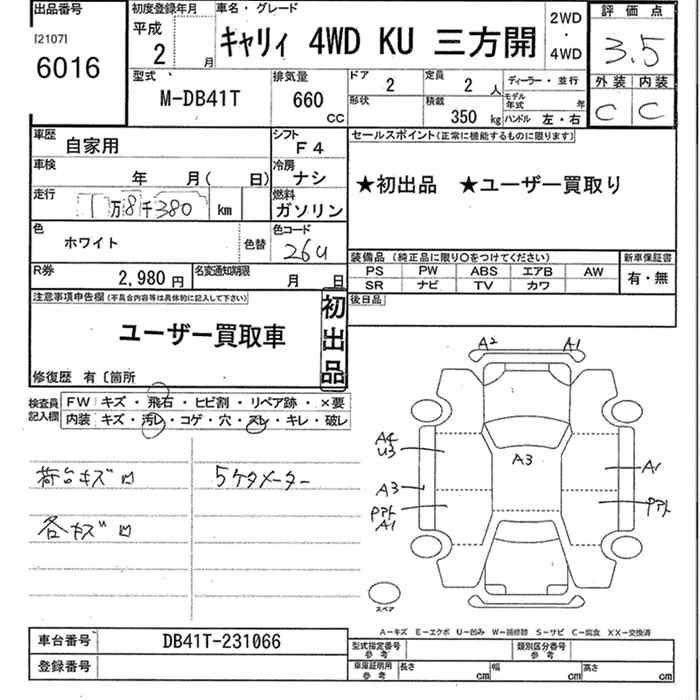 出品番号 初度登録年月 車名・グレード 2WD・4WD 評価点
[2107] 6016 平成 2 月 キャリィ 4WD KU 三方開 3.5
型式 排気量 ドア 定員 ディーラー・並行 外装 内装
M-DB41T 660 CC 2 2 人 モデル年式 年 C C
形状 積載 350 kg ハンドル 左・右
車歴 自家用 シフト F4 セールスポイント(正常に機能するものに限ります)
車検 年 月( 日) 冷房 ナシ ★初出品 ★ユーザー買取り
走行 1万8千380 km 燃料 ガソリン
色 ホワイト 色替 色コード 26U
装備品(純正品に限り○をつけてください) 新車保証書
PS PW ABS エアB AW 有・無
SR ナビ TV カワ
R券 2,980円 名変通知期限 月 日 後日品
注意事項申告欄(不具合内容等は具体的に記入して下さい) 初出品
ユーザー買取車
修復歴 有〔箇所
検査員記入欄 FW キズ・飛石・ヒビ割・リペア跡・×要
内装 キズ・汚レ・コゲ・穴・スレ・キレ・破レ
荷台キズ 5ケタメーター
各キズ
A2 A1
A4
U3
A3
A3
A1
A1
スペア
A−キズ E−エクボ U−凹み W−補修跡 S−サビ C−腐食 XX−交換済
車台番号 DB41T-231066 型式指定番号 参考 類別区分番号 参考
登録番号 車庫証明用 参考 長さ cm 幅 cm 高さ cm